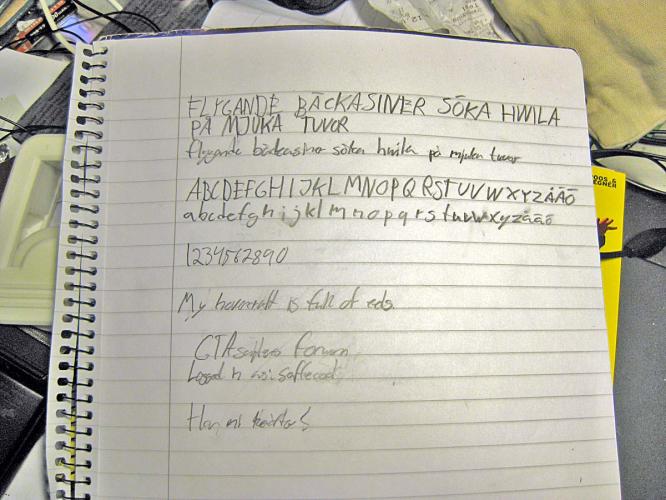 FLYGANDE BÄCKASINER SÖKA HWILA
PÅ MJUKA TUVOR
flygande bäckasiner söka hwila på mjuka tuvor
ABCDEFGHIJKLMNOPQRSTUVWXYZÅÄÖ
abcdefghijklmnopqrstuvwxyzåäö
1234567890
My hovercraft is full of eels.
Forum
Logged in as: